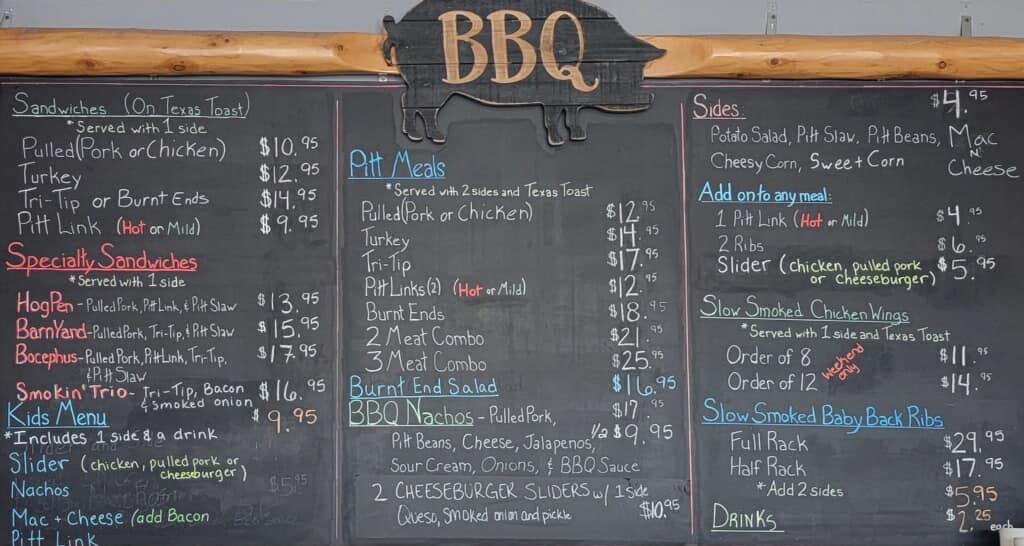 BBQ
Sandwiches (On Texas Toast)
*Served with 1 side
Pulled (Pork or Chicken) $10.95
Turkey $12.95
Tri-Tip or Burnt Ends $14.95
Pitt Link (Hot or Mild) $9.95
Specialty Sandwiches
*Served with 1 side
HogPen - Pulled Pork, Pitt Link, & Pitt Slaw $13.95
BarnYard - Pulled Pork, Tri-Tip, & Pitt Slaw $15.95
Bocephus - Pulled Pork, Pitt Link, Tri-Tip, $17.95
& Pitt Slaw
Smokin' Trio - Tri-Tip, Bacon $16.95
& smoked onion
Kids Menu $9.95
*Includes 1 side & a drink
Slider (chicken, pulled pork or
cheeseburger)
Nachos
Mac + Cheese (add Bacon
Pitt Link
Pitt Meals
*Served with 2 sides and Texas Toast
Pulled (Pork or Chicken) $12.95
Turkey $14.95
Tri-Tip $17.95
Pitt Links (2) (Hot or Mild) $12.95
Burnt Ends $18.95
2 Meat Combo $21.95
3 Meat Combo $25.95
Burnt End Salad $16.95
BBQ Nachos - Pulled Pork, $17.95
Pitt Beans, Cheese, Jalapenos, 1/2 $9.95
Sour Cream, Onions, & BBQ Sauce
2 CHEESEBURGER SLIDERS w/ 1 side
Queso, smoked onion and pickle $10.95
Sides $4.95
Potato Salad, Pitt Slaw, Pitt Beans, Mac
N'
Cheesy Corn, Sweet Corn Cheese
Add onto any meal:
1 Pitt Link (Hot or Mild) $4.95
2 Ribs $6.95
Slider (chicken, pulled pork $5.95
or cheeseburger)
Slow Smoked Chicken Wings
*Served with 1 side and Texas Toast
Order of 8 $11.95
Order of 12 $14.95
Weekend
only
Slow Smoked Baby Back Ribs
Full Rack $29.95
Half Rack $17.95
*Add 2 sides $5.95
DRINKS $2.25
each